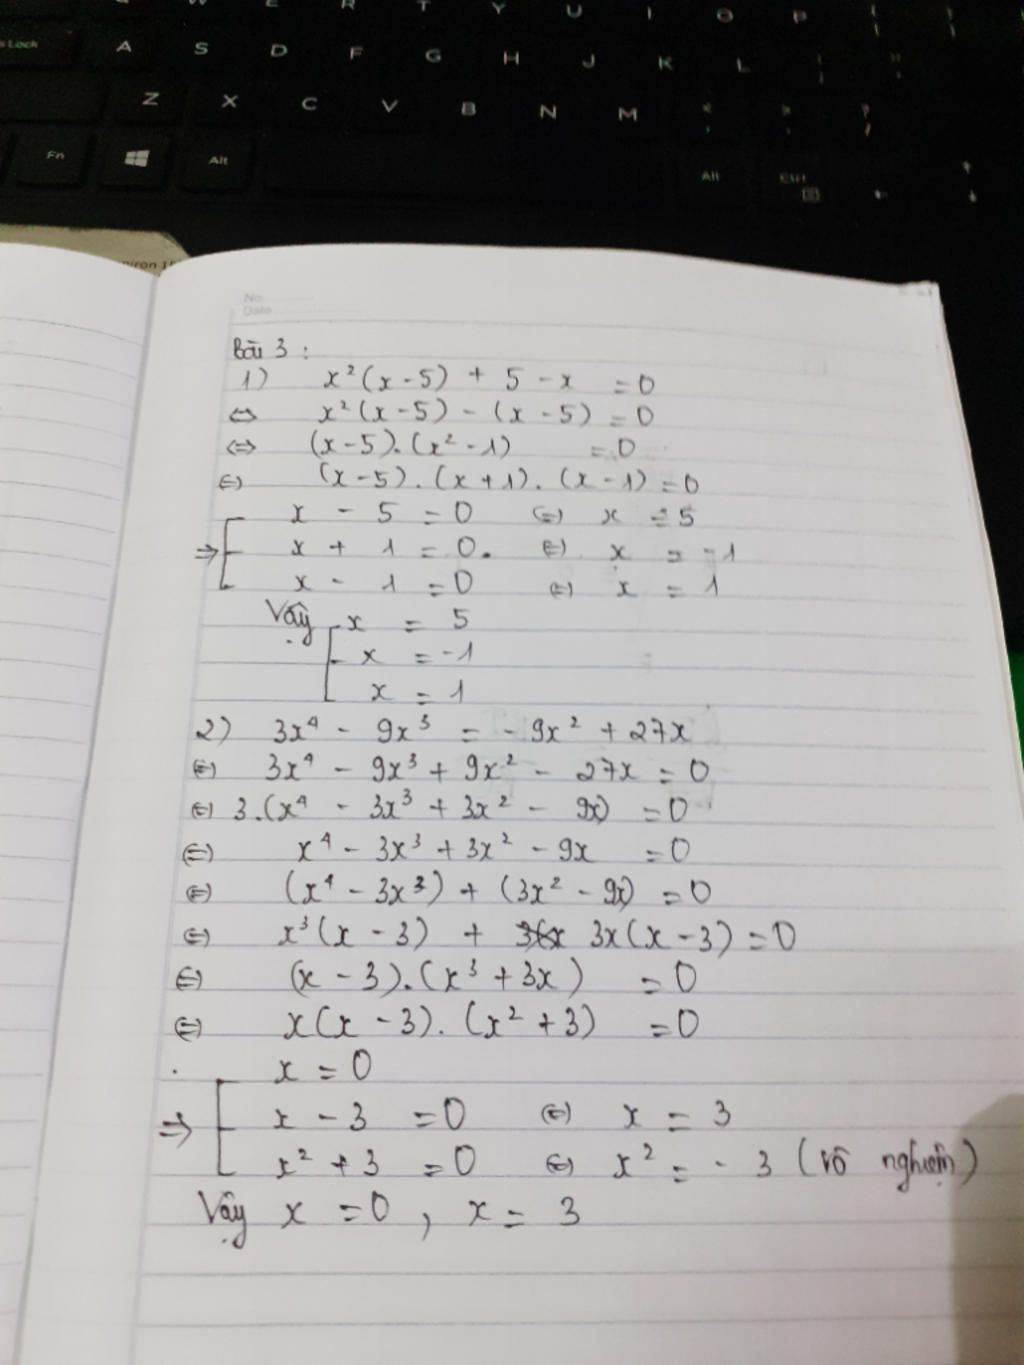 Q W E R T Y U I O P
s Lock A S D F G H J K L
Z X C V B N M
Fn Alt Alt Ctrl
No
Date
Bài 3 :
1) x²(x - 5) + 5 - x = 0
⇔ x²(x - 5) - (x - 5) = 0
⇔ (x - 5).(x² - 1) = 0
⇔ (x - 5).(x + 1).(x - 1) = 0
x - 5 = 0 ⇔ x = 5
⇒ x + 1 = 0. ⇔ x = -1
x - 1 = 0 ⇔ x = 1
Vậy x = 5
x = -1
x = 1
2) 3x⁴ - 9x³ = - 9x² + 27x
⇔ 3x⁴ - 9x³ + 9x² - 27x = 0
⇔ 3.(x⁴ - 3x³ + 3x² - 9x) = 0
⇔ x⁴ - 3x³ + 3x² - 9x = 0
⇔ (x⁴ - 3x³) + (3x² - 9x) = 0
⇔ x³(x - 3) + 3x(x - 3) = 0
⇔ (x - 3).(x³ + 3x) = 0
⇔ x(x - 3).(x² + 3) = 0
x = 0
⇒ x - 3 = 0 ⇔ x = 3
x² + 3 = 0 ⇔ x² = - 3 (vô nghiệm)
Vậy x = 0 , x = 3